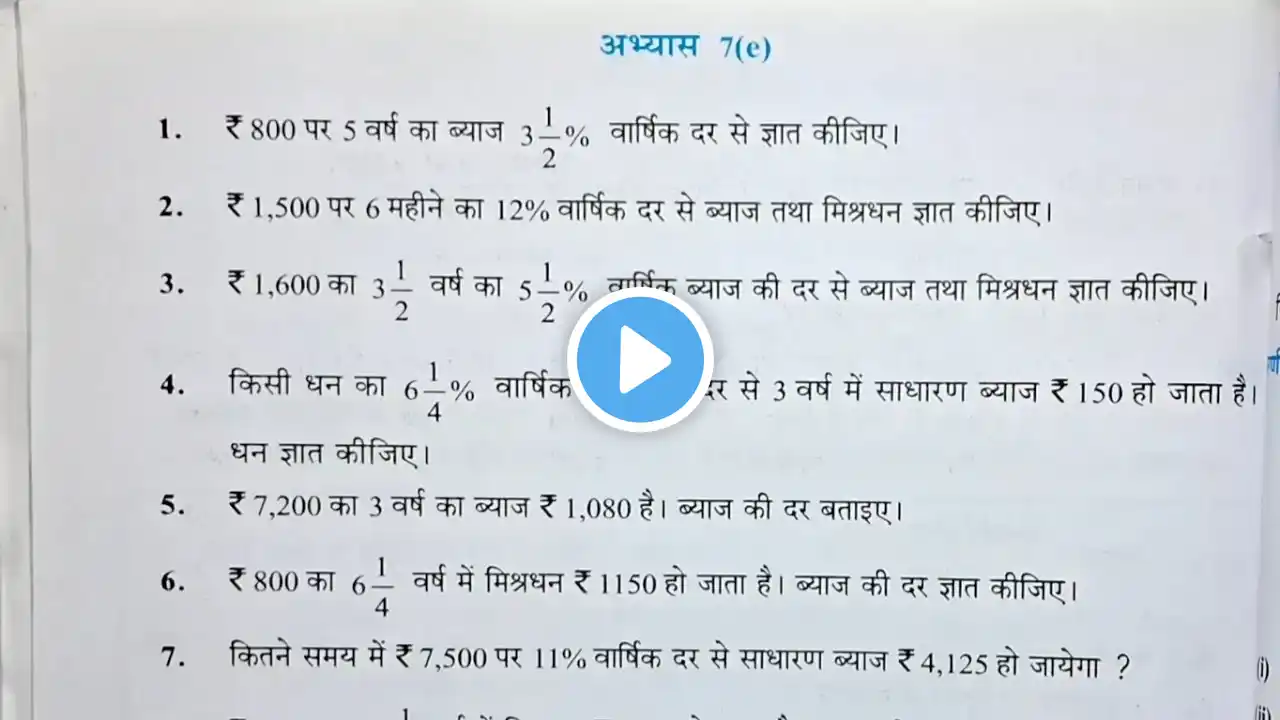 अभ्यास 7(e)
1. ₹ 800 पर 5 वर्ष का ब्याज 3 1/2 % वार्षिक दर से ज्ञात कीजिए।
2. ₹ 1,500 पर 6 महीने का 12% वार्षिक दर से ब्याज तथा मिश्रधन ज्ञात कीजिए।
3. ₹ 1,600 का 3 1/2 वर्ष का 5 1/2 % वार्षिक ब्याज की दर से ब्याज तथा मिश्रधन ज्ञात कीजिए।
4. किसी धन का 6 1/4 % वार्षिक दर से 3 वर्ष में साधारण ब्याज ₹ 150 हो जाता है।
धन ज्ञात कीजिए।
5. ₹ 7,200 का 3 वर्ष का ब्याज ₹ 1,080 है। ब्याज की दर बताइए।
6. ₹ 800 का 6 1/4 वर्ष में मिश्रधन ₹ 1150 हो जाता है। ब्याज की दर ज्ञात कीजिए।
7. कितने समय में ₹ 7,500 पर 11% वार्षिक दर से साधारण ब्याज ₹ 4,125 हो जायेगा ?
(i)